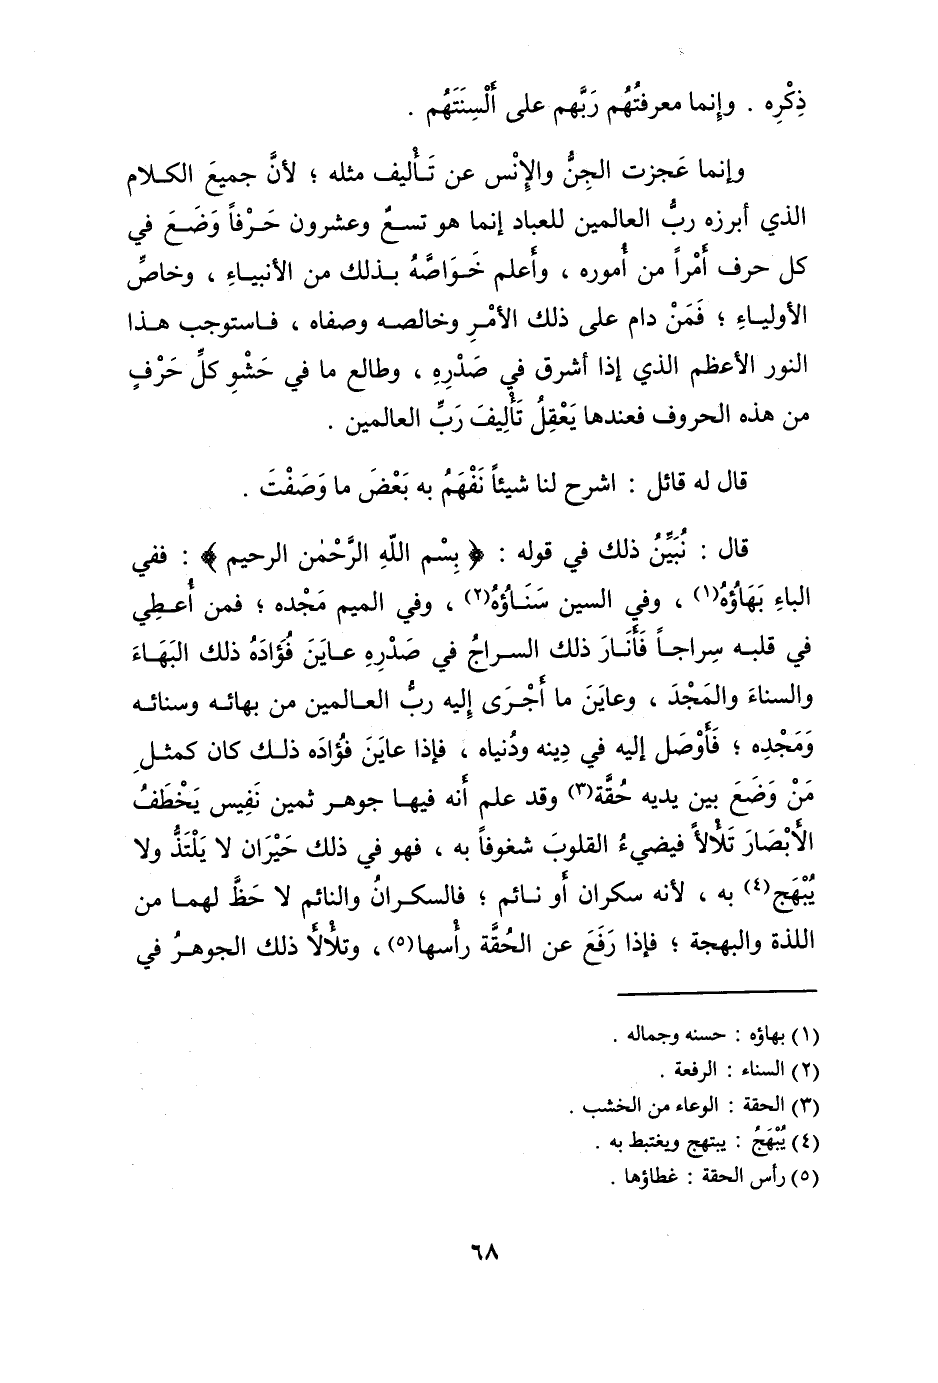 ذِكْرِه . وإنما معرفتُهُم رَبَّهم على أَلْسِنَتَهُم .
وإنما عَجزت الجِنُّ والإِنْس عن تَأْليف مثله ؛ لأنَّ جميعَ الكلام
الذي أبرزه ربُّ العالمين للعباد إنما هو تسعٌ وعشرون حَرْفاً وَضَعَ في
كل حرف أَمْراً من أُموره ، وأَعلم خَوَاصَّهُ بذلك من الأنبياءِ ، وخاصِّ
الأولياءِ ؛ فَمَنْ دام على ذلك الأمْرِ وخالصه وصفاه ، فاستوجب هذا
النور الأعظم الذي إذا أشرق في صَدْرِهِ ، وطالع ما في حَشْوِ كلِّ حَرْفٍ
من هذه الحروف فعندها يَعْقِلُ تَأْلِيفَ رَبِّ العالمين .
قال له قائل : اشرح لنا شيئاً نَفْهَمُ به بَعْضَ ما وَصَفْتَ .
قال : نُبَيِّنُ ذلك في قوله : ﴿ بِسْم اللّهِ الرَّحْمٰن الرحيم ﴾ : ففي
الباءِ بَهَاؤُهُ(١) ، وفي السين سَنَاؤُهُ(٢) ، وفي الميم مَجْده ؛ فمن أُعطِي
في قلبه سِراجاً فَأَنَارَ ذلك السراجُ في صَدْرِهِ عايَنَ فُؤَادَهُ ذلك البَهَاءَ
والسناءَ والمَجْدَ ، وعايَنَ ما أَجْرَى إليه ربُّ العالمين من بهائه وسنائه
وَمَجْدِه ؛ فَأَوْصَل إليه في دِينه ودُنياه ، فإذا عايَنَ فُؤَادَه ذلك كان كمثلِ
مَنْ وَضَعَ بين يديه حُقَّة(٣) وقد علم أنه فيها جوهر ثمين نَفِيس يَخْطَفُ
الأَبْصَارَ تَلَأْلأً فيضيءُ القلوبَ شغوفاً به ، فهو في ذلك حَيْرَان لا يَلْتَذُّ ولا
يُبْهَج(٤) به ، لأنه سكران أو نائم ؛ فالسكرانُ والنائم لا حَظَّ لهما من
اللذة والبهجة ؛ فإذا رَفَعَ عن الحُقَّة رأْسها(٥) ، وتلأْلأَ ذلك الجوهرُ في
(١) بهاؤه : حسنه وجماله .
(٢) السناء : الرفعة .
(٣) الحقة : الوعاء من الخشب .
(٤) يُبْهَجُ : يبتهج ويغتبط به .
(٥) رأس الحقة : غطاؤها .
٦٨